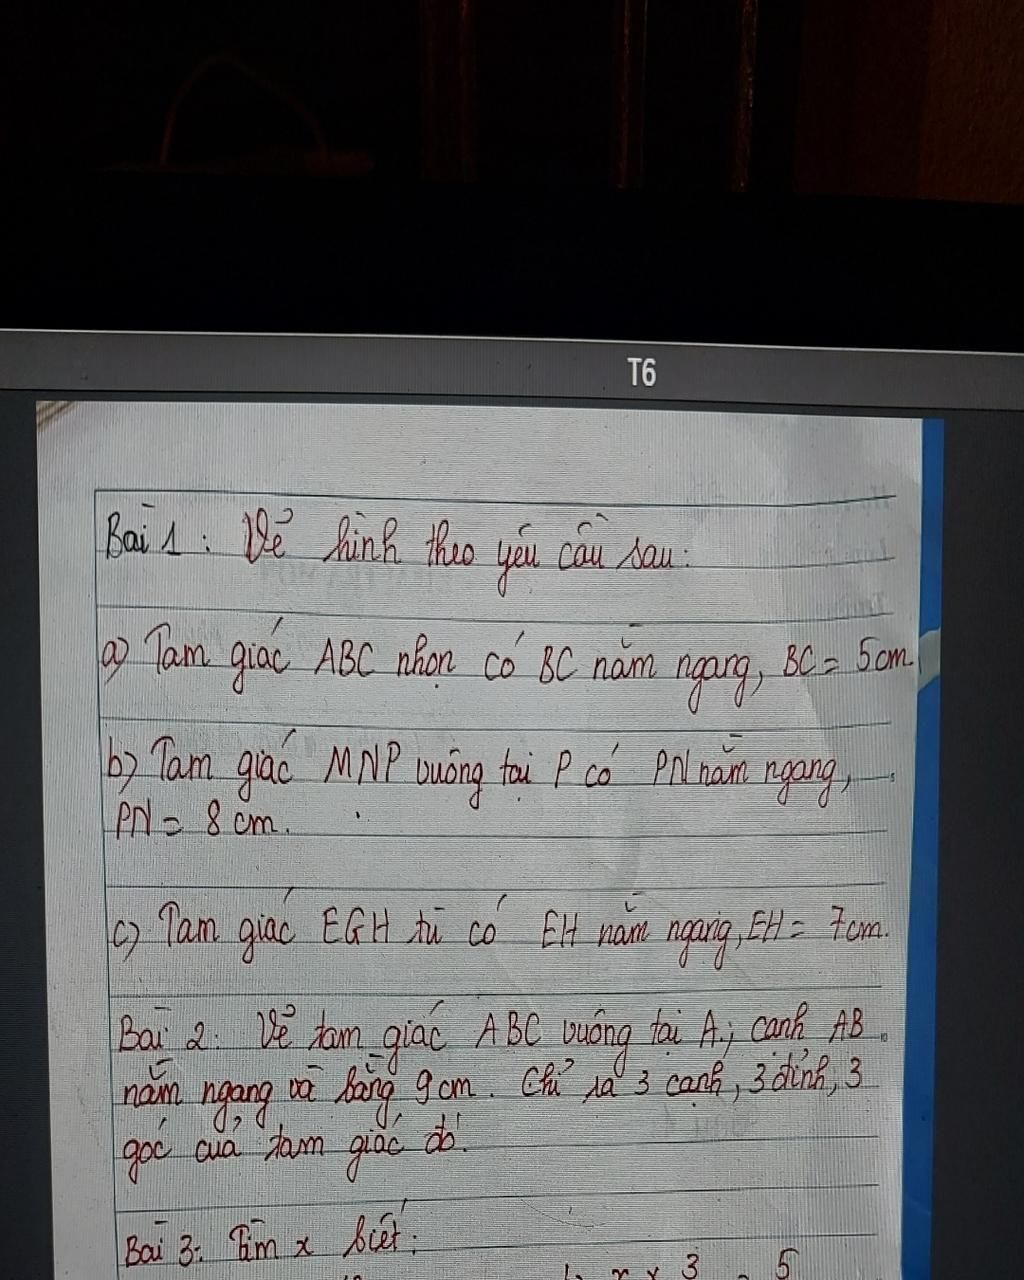 T6
Bài 1 : Vẽ hình theo yêu cầu sau :
a) Tam giác ABC nhọn có BC nằm ngang, BC = 5cm
b) Tam giác MNP vuông tại P có PN nằm ngang,
PN = 8 cm.
c) Tam giác EGH tù có EH nằm ngang, EH = 7cm.
Bài 2 : Vẽ tam giác ABC vuông tại A ; cạnh AB
nằm ngang và bằng 9cm. Chỉ ra 3 cạnh, 3 đỉnh, 3
góc của tam giác đó.
Bài 3 : Tìm x biết :
x 3 = 5